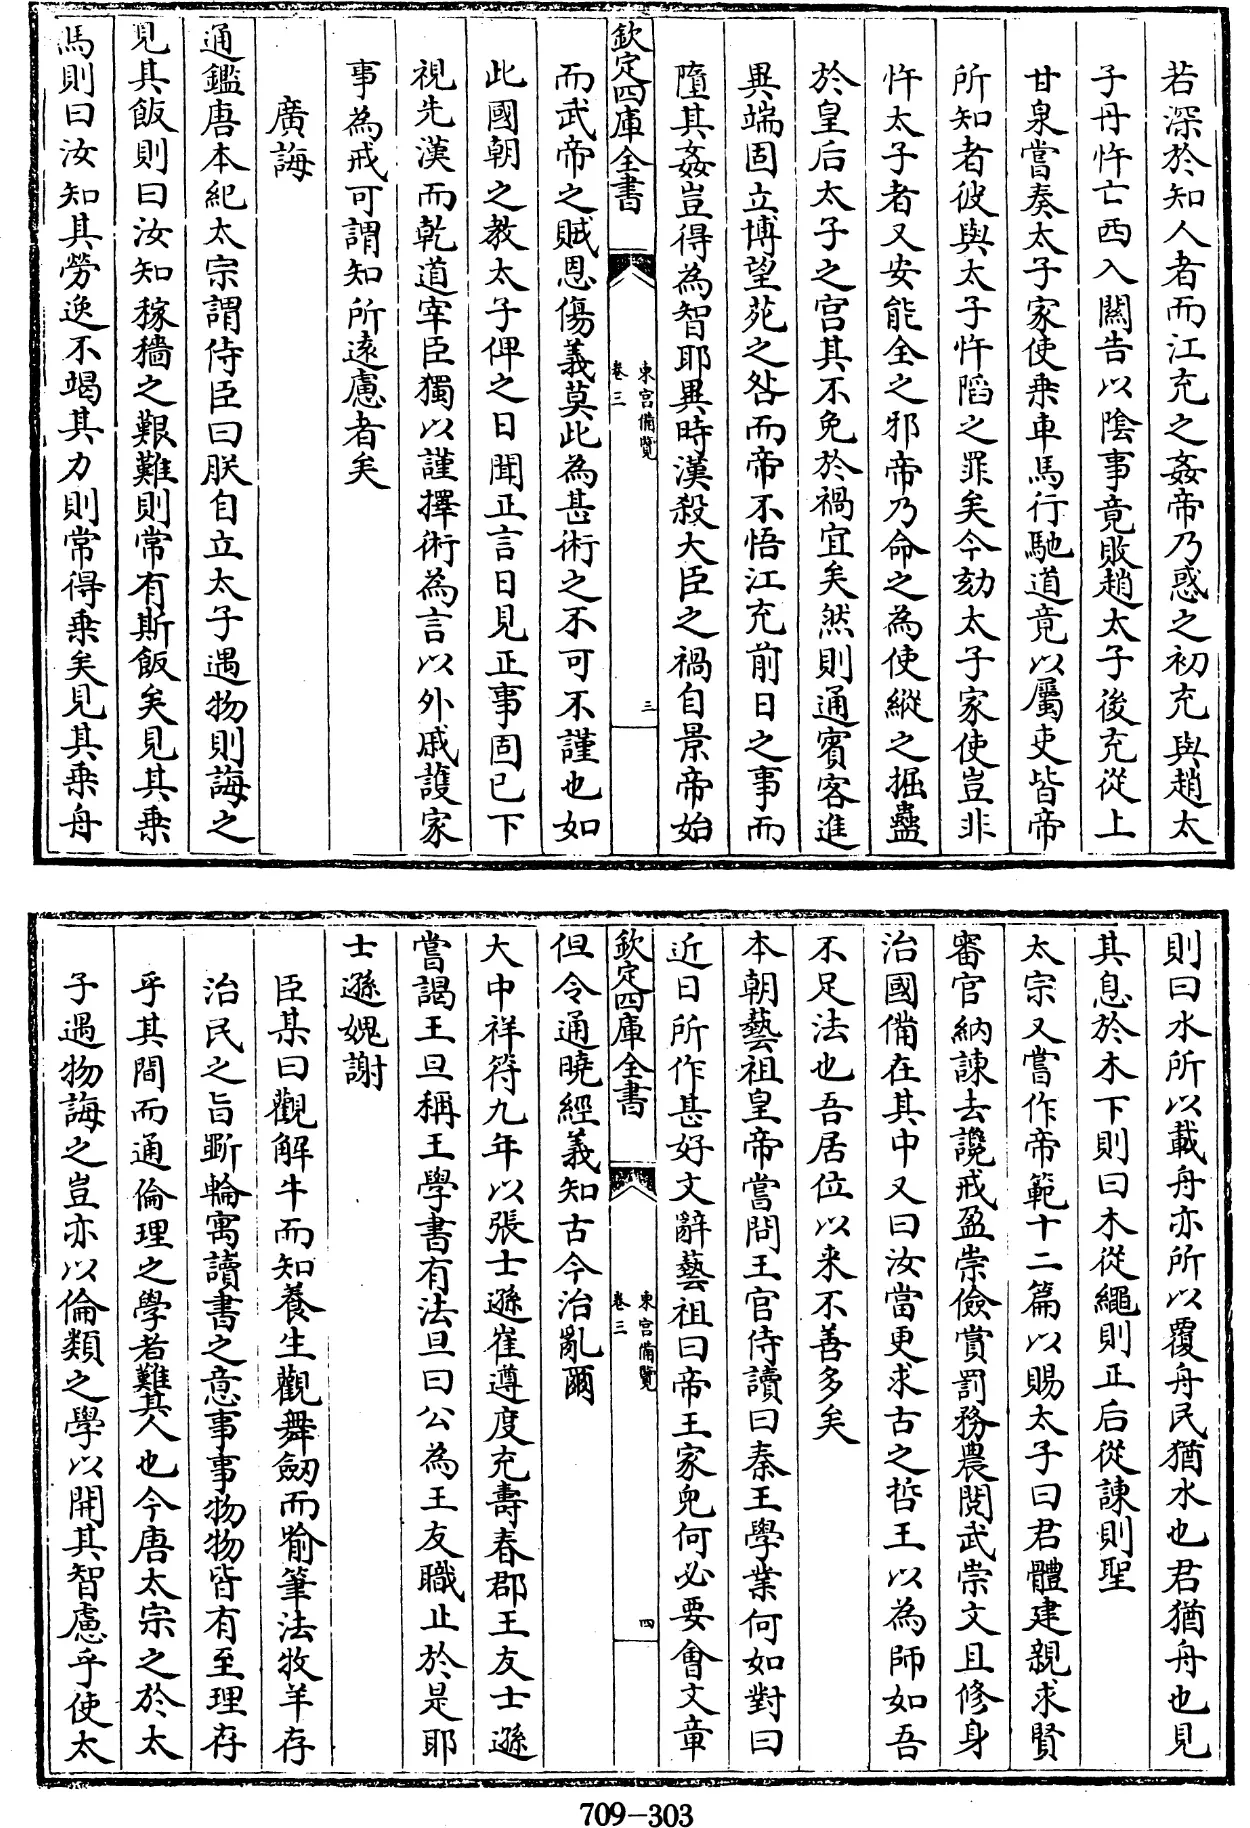 若深於知人者而江充之姦帝乃惑之初充與趙太
子丹忤亡西入關告以陰事竟敗趙太子後充從上
甘泉嘗奏太子家使乗車馬行馳道竟以屬吏皆帝
所知者彼與太子忤陷之罪矣今劾太子家使豈非
忤太子者又安能全之邪帝乃命之為使縱之掘蠱
於皇后太子之宫其不免於禍宜矣然則通賓客進
異端固立博望苑之咎而帝不悟江充前日之事而
墮其姦豈得為智耶異時漢殺大臣之禍自景帝始
欽定四庫全書
東宫備覽
卷三
三
而武帝之賊恩傷義莫此為甚術之不可不謹也如
此國朝之教太子俾之日聞正言日見正事固已下
視先漢而乾道宰臣獨以謹擇術為言以外戚護家
事為戒可謂知所逺慮者矣
廣誨
通鑑唐本紀太宗謂侍臣曰朕自立太子遇物則誨之
見其飯則曰汝知稼穡之艱難則常有斯飯矣見其乗
馬則曰汝知其勞逸不竭其力則常得乗矣見其乗舟
則曰水所以載舟亦所以覆舟民猶水也君猶舟也見
其息於木下則曰木從繩則正后從諫則聖
太宗又嘗作帝範十二篇以賜太子曰君體建親求賢
審官納諫去讒戒盈崇儉賞罰務農閱武崇文且修身
治國備在其中又曰汝當更求古之哲王以為師如吾
不足法也吾居位以来不善多矣
本朝藝祖皇帝嘗問王官侍讀曰秦王學業何如對曰
近日所作甚好文辭藝祖曰帝王家兒何必要會文章
欽定四庫全書
東宫備覽
卷三
四
但令通曉經義知古今治亂爾
大中祥符九年以張士遜崔遵度充壽春郡王友士遜
嘗謁王旦稱王學書有法旦曰公為王友職止於是耶
士遜媿謝
臣某曰觀解牛而知養生觀舞劒而喻筆法牧羊存
治民之旨斲輪寓讀書之意事事物物皆有至理存
乎其間而通倫理之學者難其人也今唐太宗之於太
子遇物誨之豈亦以倫類之學以開其智慮乎使太
709-303